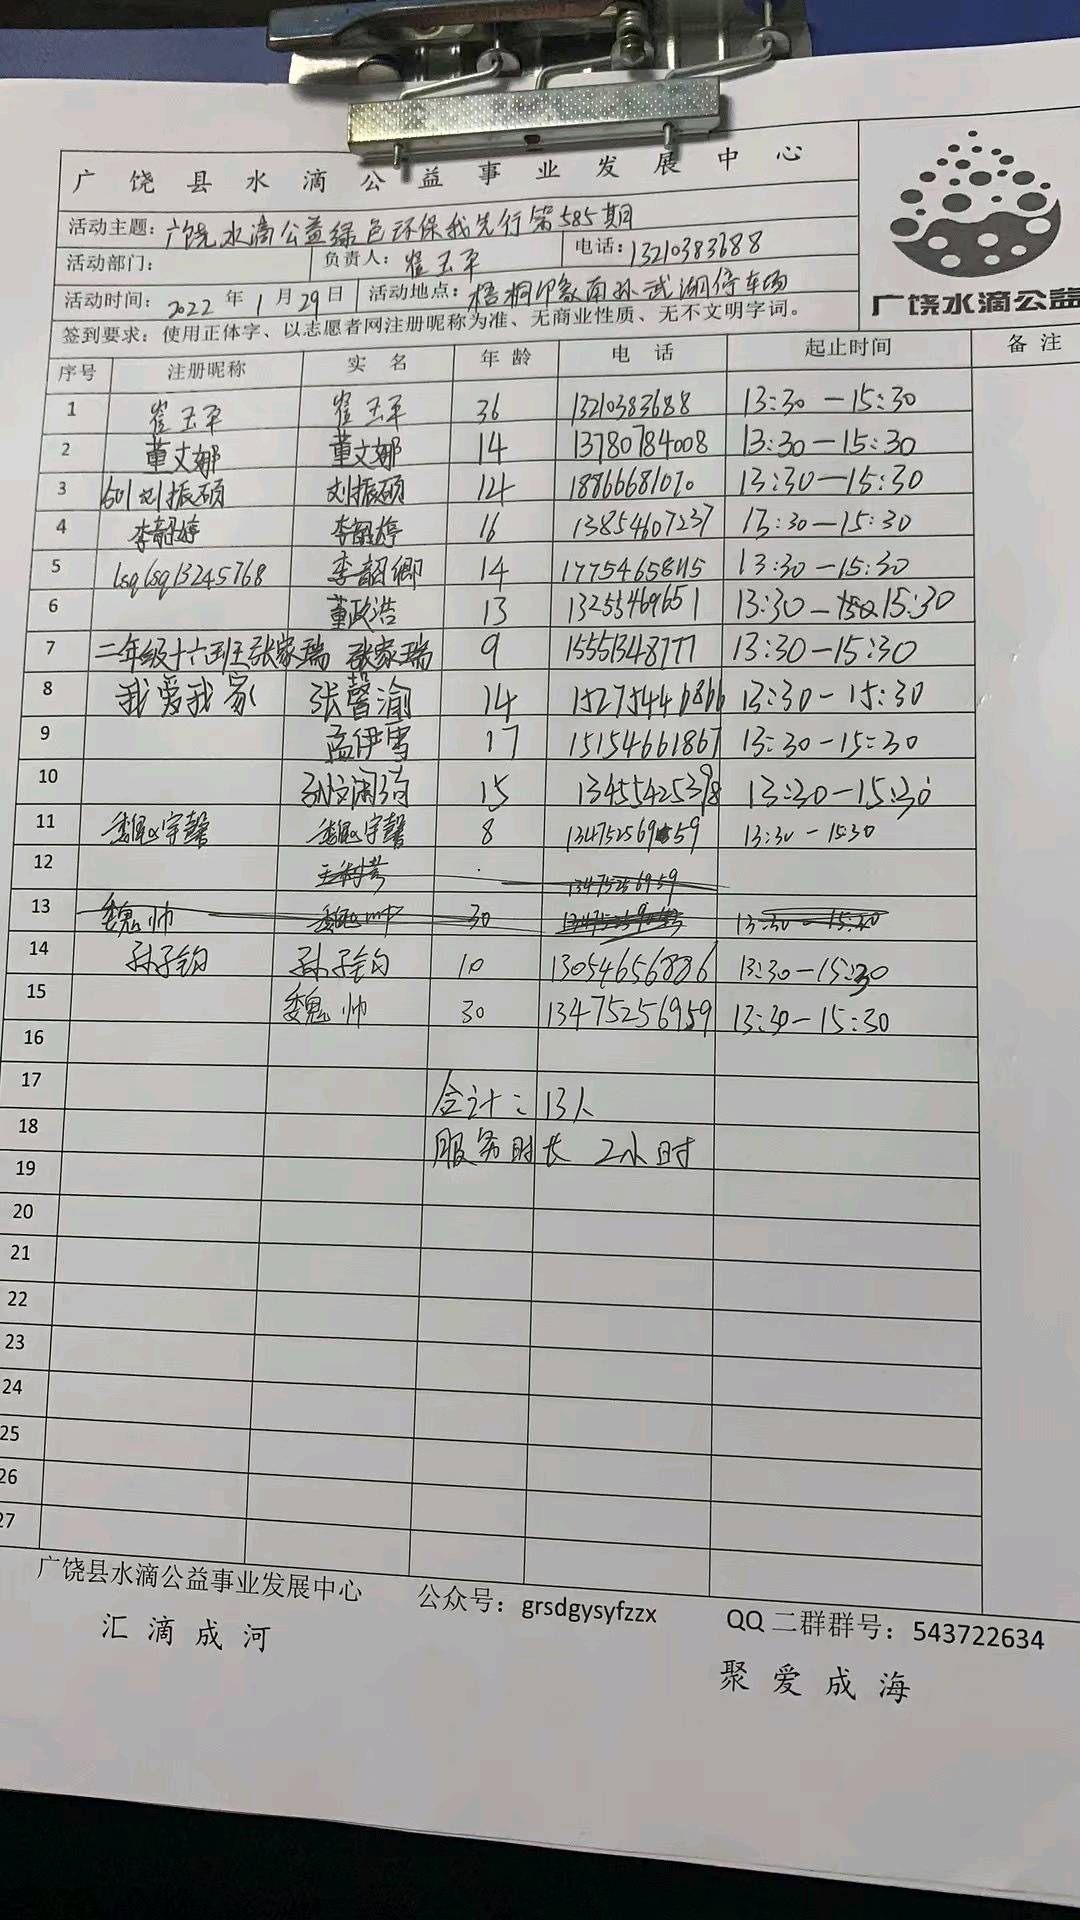 广饶县水滴公益事业发展中心
活动主题：广饶水滴公益绿色环保我先行第585期
活动部门： 负责人：崔玉平 电话：13210383688
活动时间：2022年1月29日 活动地点：梧桐印象南孙武湖停车场
签到要求：使用正体字、以志愿者网注册昵称为准、无商业性质、无不文明字词。
广饶水滴公益
序号 注册昵称 实名 年龄 电话 起止时间 备注
1 崔玉平 崔玉平 36 13210383688 13:30-15:30
2 董文娜 董文娜 14 13780784008 13:30-15:30
3 601刘振硕 刘振硕 12 18866681070 13:30-15:30
4 李韶婷 李韶婷 16 13854607237 13:30-15:30
5 lsqlsq13245768 李韶卿 14 13:30-15:30
6 董政浩 13 13255469651 13:30-15:30
7 二年级十六班张家瑞 张家瑞 9 15551348777 13:30-15:30
8 我爱我家 张馨渝 14 15275446866 13:30-15:30
9 孟伊雪 17 15154661867 13:30-15:30
10 15 13455425398 13:30-15:30
11 魏宇馨 魏宇馨 8 13:30-15:30
12 13475256959
13 魏帅 30 13:30-15:30
14 孙子钧 孙子钧 10 13054656886 13:30-15:30
15 魏帅 30 13475256959 13:30-15:30
16
17 合计：13人
18 服务时长 2小时
19
20
21
22
23
24
25
26
27
广饶县水滴公益事业发展中心 公众号：grsdgysyfzzx QQ二群群号：543722634
汇滴成河 聚爱成海